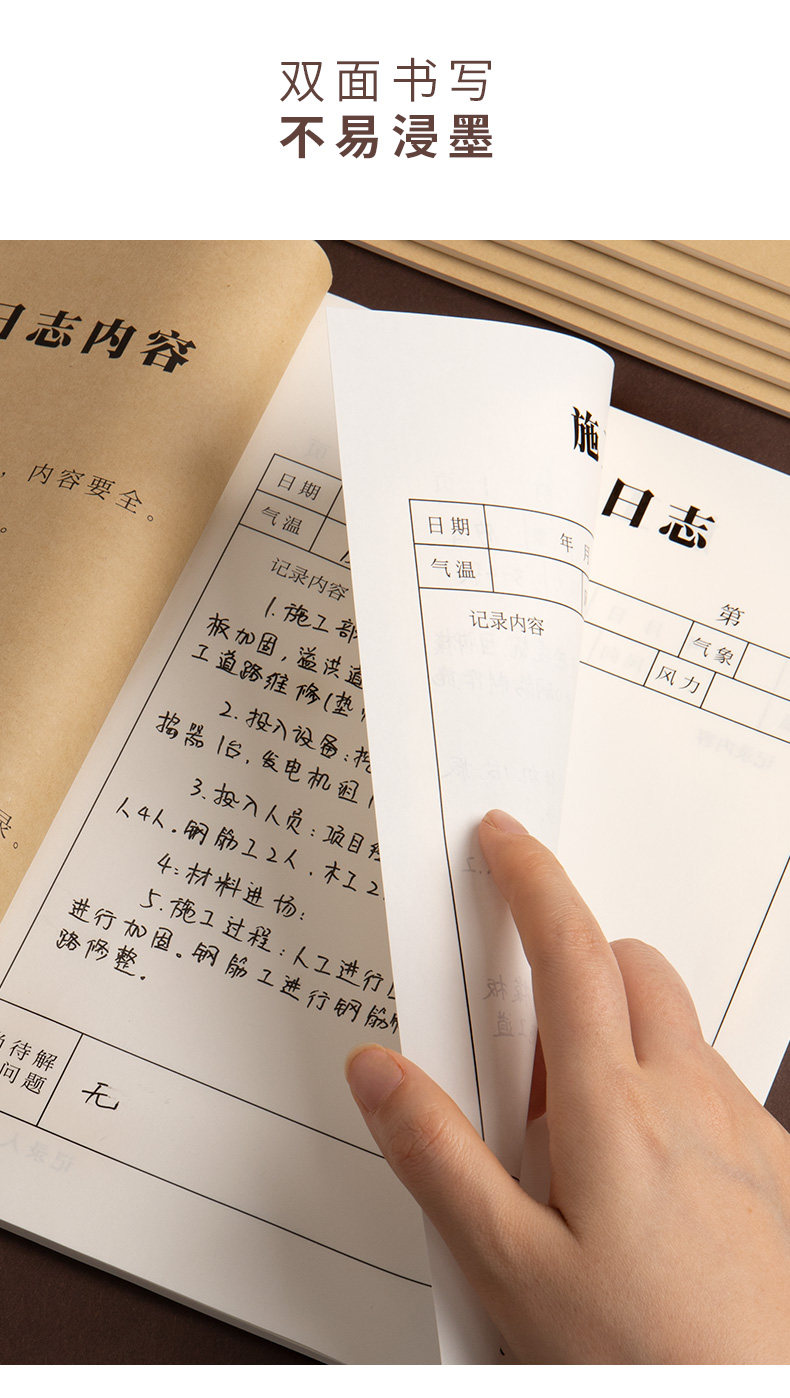 双面书写
不易浸墨
日志内容
，内容要全。
。
录。
日期
气温
记录内容
1.施工部
板加固，溢洪道
工道路维修(垫
2.投入设备:挖
捣器1台，发电机组1
3.投入人员:项目经
人4人.钢筋工2人.木工2
4:材料进场:
5.施工过程:人工进行
进行加固。钢筋工进行钢筋
路修整。
待解
问题
无
施
日期
年 月
气温
记录内容
日志
第
气象
风力
记录内容
记录人